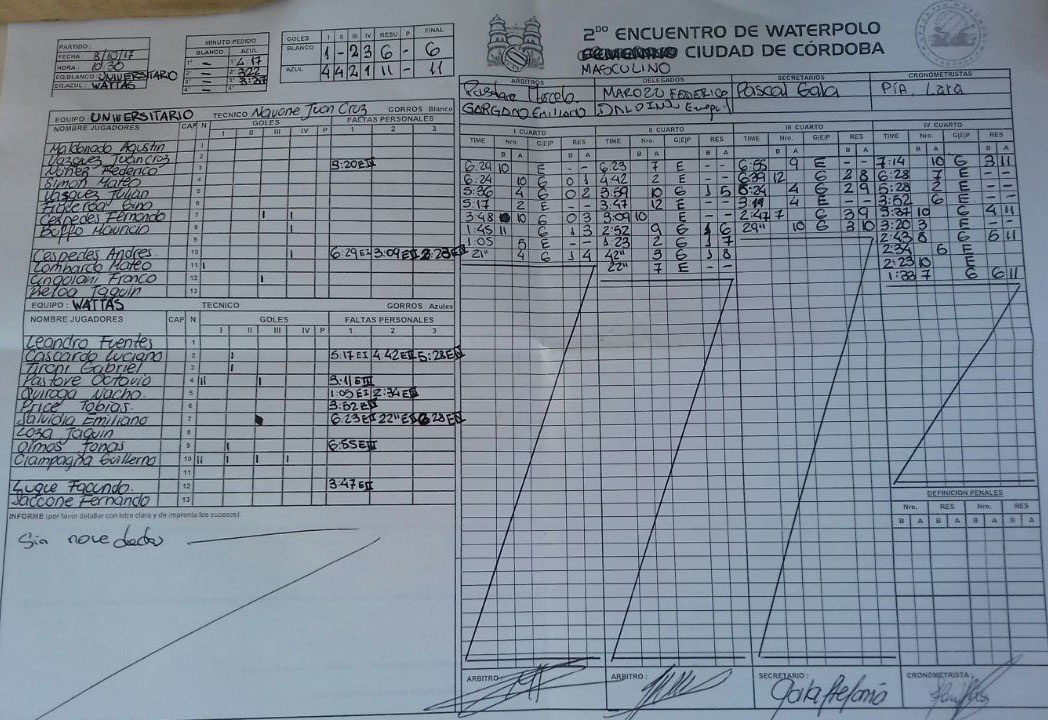 PARTIDO:
FECHA 8/10/17
HORA: 10:30
EQ.BLANCO: UNIVERSITARIO
EQ.AZUL: WATTAS
MINUTO PEDIDO
BLANCO AZUL
1° - 1° 4 17
2° - 2° 3:22
3° - 3° 3:37
GOLES I II III IV RESU P FINAL
BLANCO 1 - 2 3 6 - 6
AZUL 4 4 2 1 11 - 11
2DO ENCUENTRO DE WATERPOLO
FEMENINO CIUDAD DE CÓRDOBA
MASCULINO
ARBITROS DELEGADOS SECRETARIOS CRONOMETRISTAS
MAROZZI FEDERICO Pascal Gala PIA, Lara
GARGANO EMILIANO
EQUIPO UNIVERSITARIO TECNICO Navone Juan Cruz GORROS Blanco
NOMBRE JUGADORES CAP N GOLES FALTAS PERSONALES
I II III IV P 1 2 3
Maldonado Agustin 1
Vazquez Juan Cruz 2
Nuñez Federico 3 3:20 E IV
Simon Mateo 4
Vasquez Julian 5
Figueroa Gino 6
Cespedes Fernando 7
Boffo Mauricio 8
Cespedes Andres 10 6:29 E I 3:09 E II 2:23 E IV
Lombardo Mateo 11
Angolani Franco 12
Beloa Taquin 13
EQUIPO: WATTAS TECNICO GORROS Azules
NOMBRE JUGADORES CAP N GOLES FALTAS PERSONALES
I II III IV P 1 2 3
Leandro Fuentes 1
Cascardo Luciano 2 5:17 E I 4 42 E II 5:28 E IV
Tironi Gabriel 3
Pastore Octavio 4 3:11 E III
Quiroga Nacho 5 1:05 E I 2:34 E IV
Price Tobias 6 3:52 E IV
Salvidia Emiliano 7 6:23 E II 22" E II 6 28 E IV
Loza Taquin 8
Olmos Jonas 9 6:55 E III
Ciampagna Guillermo 10
11
Luque Facundo 12 3:47 E II
Saccone Fernando 13
INFORME (por favor detallar con letra clara y de imprenta los sucesos)
Sin novedades
I CUARTO II CUARTO III CUARTO IV CUARTO
TIME Nro. G|E|P RES TIME Nro. G|E|P RES TIME Nro. G|E|P RES TIME Nro. G|E|P RES
B A B A B A B A B A B A B A B A
6:29 10 E - - 6:23 7 E - - 6:55 9 E - - 7:14 10 G 3 11
6:24 10 G 0 1 4:42 2 E - - 6:39 12 G 2 8 6:28 7 E - -
5:36 4 G 0 2 3:59 10 G 1 5 5:24 4 G 2 9 5:28 2 E - -
5:17 2 E - - 3:47 12 E - - 3:11 4 E - - 3:52 6 E - -
3:48 10 G 0 3 3:09 10 E - - 2:47 7 G 3 9 3:37 10 G 4 11
1:45 11 G 1 3 2:52 9 G 1 6 29" 10 G 3 10 3:20 3 E - -
1:05 5 E - - 1:23 2 G 1 7 2:43 8 G 5 11
21" 4 G 1 4 42" 3 G 1 8 2:34 5 E
22" 7 E - - 2:23 10 E
1:33 7 G 6 11
DEFINICION PENALES
Nro. RES Nro. RES
B A B A B A B A
ARBITRO: ARBITRO: SECRETARIO: CRONOMETRISTA: